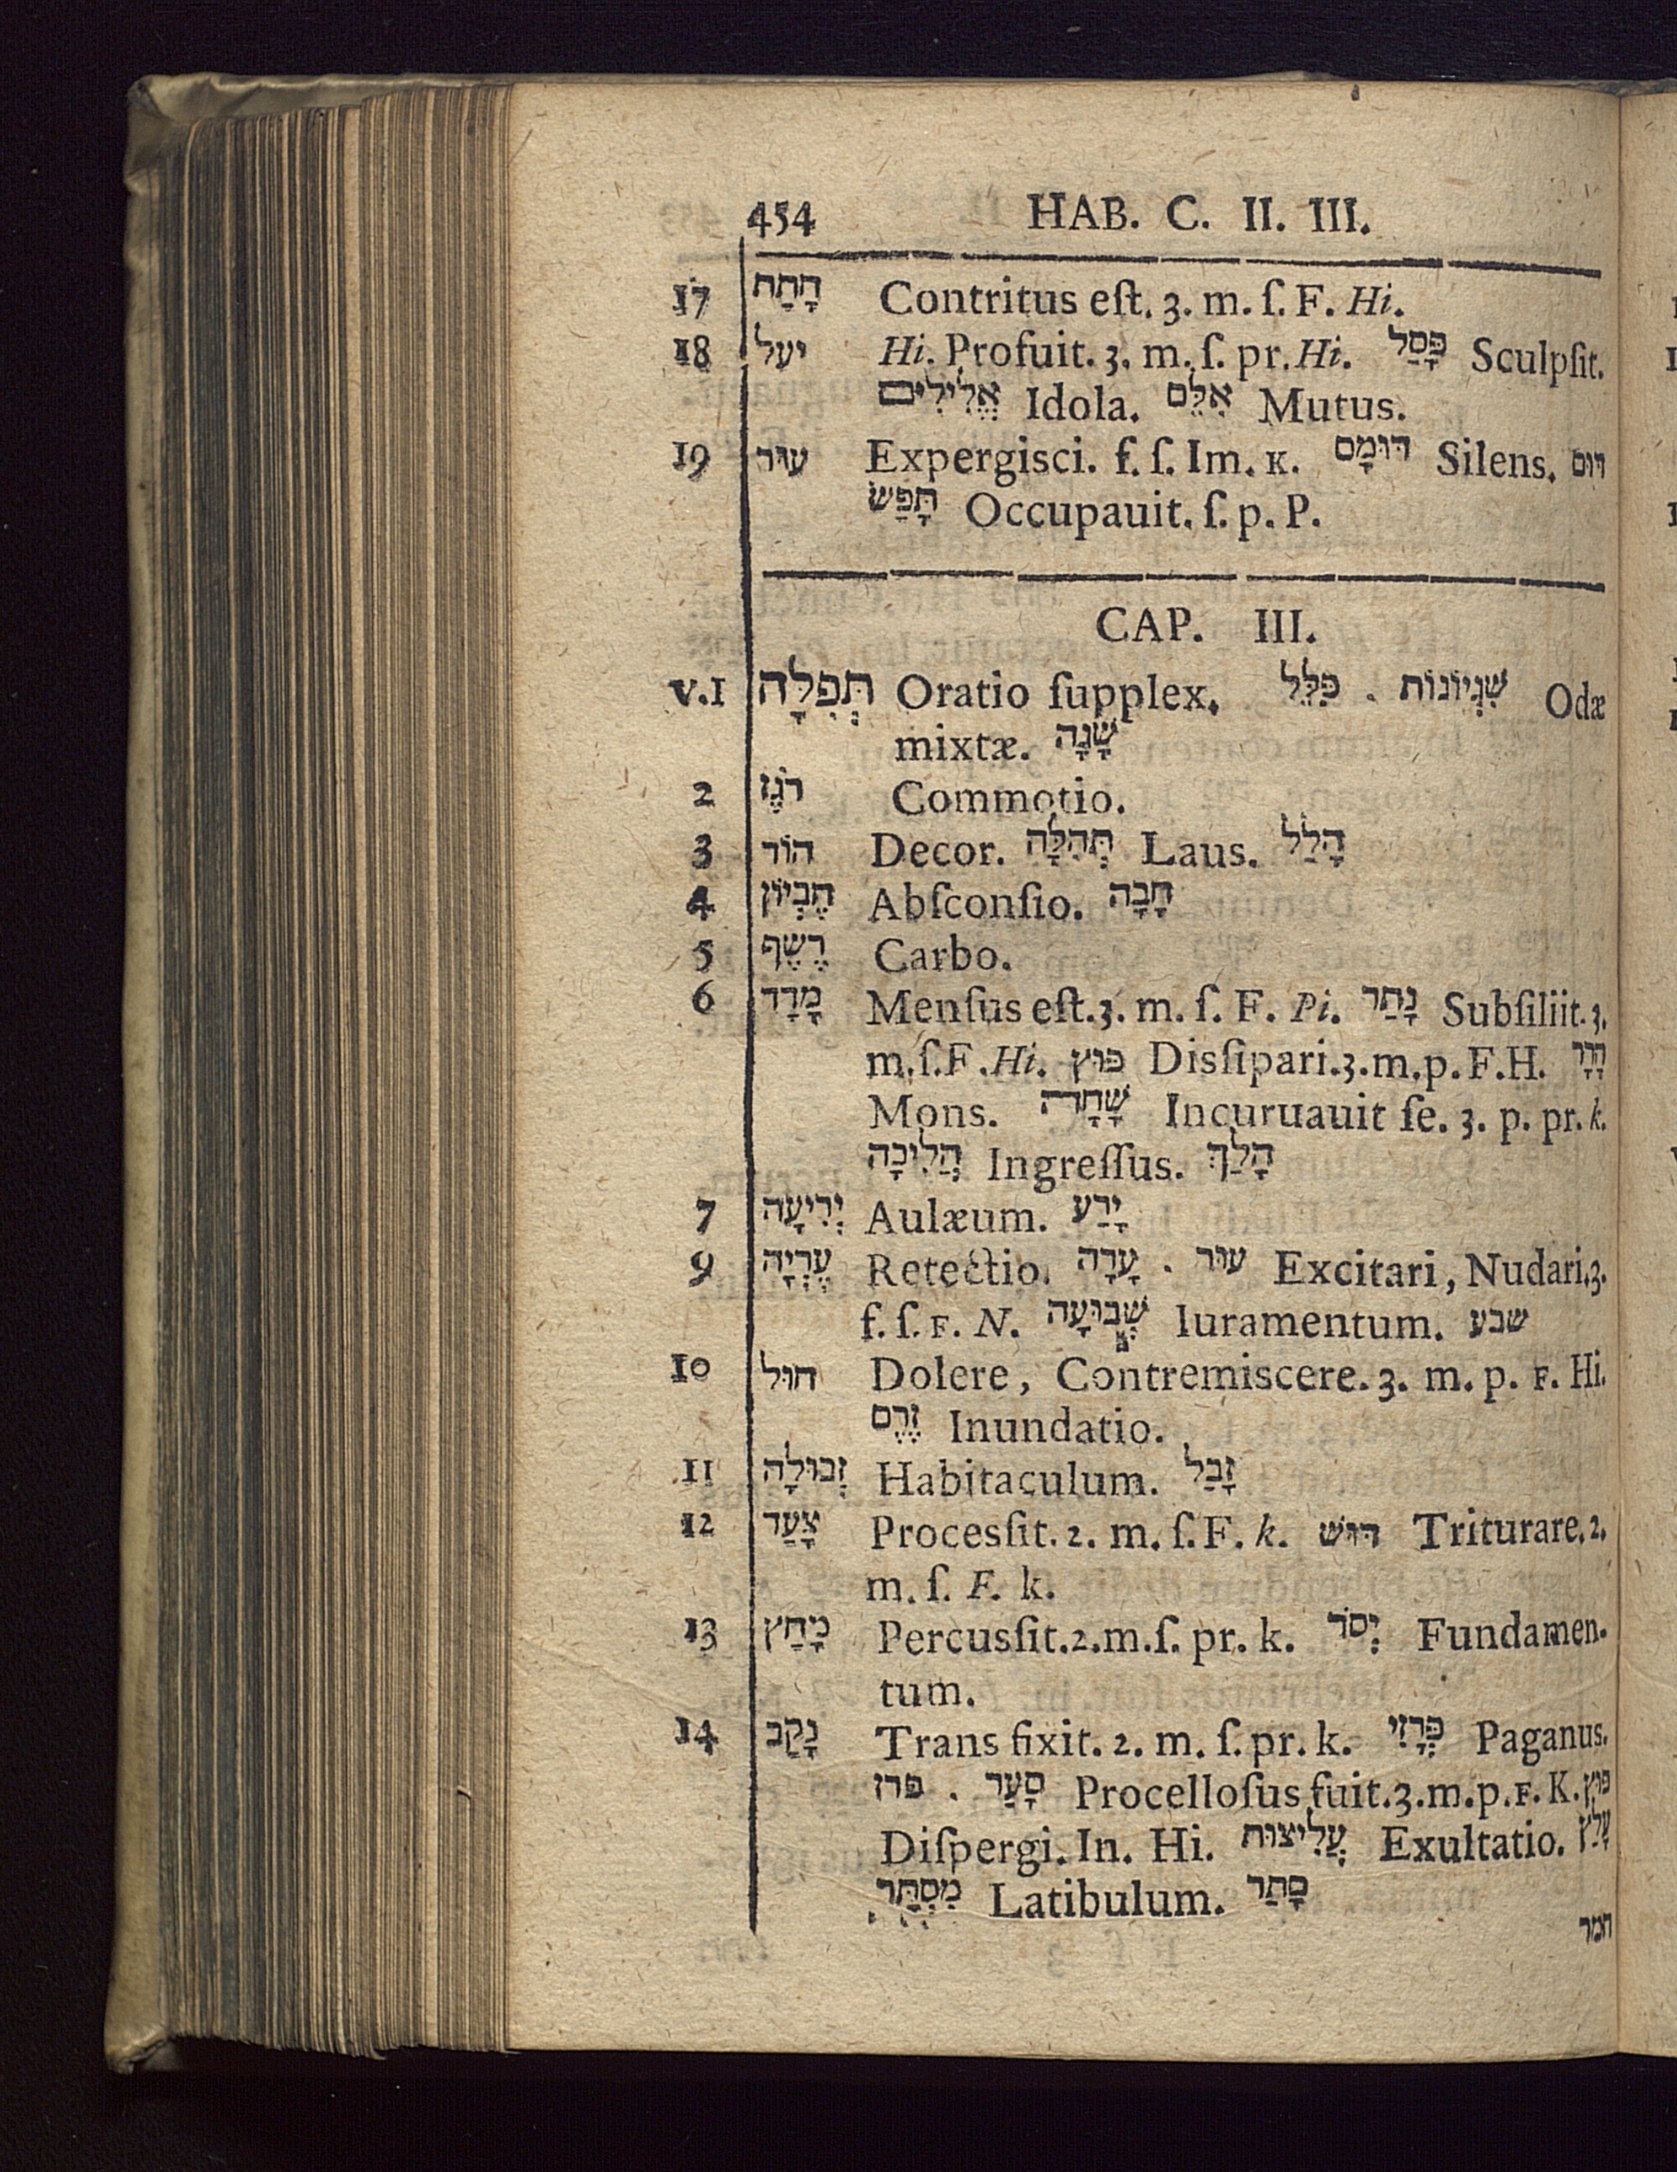 454 HAB. C. II. III.
17 חָתַת Contritus eſt. 3. m. ſ. F. Hi.
18 יעל Hi. Profuit. 3. m. ſ. pr. Hi. פָּסַל Sculpſit.
אֱלִילִים Idola. אִלֵּם Mutus.
19 עוּר Expergisci. f. ſ. Im. K. דּוּמָם Silens. דום
תָּפַשׂ Occupauit. ſ. p. P.
CAP. III.
v.1 תְּפִלָּה Oratio ſupplex. פִּלֵּל . שִׁגְיוֹנוֹת Odæ
mixtæ. שָׁגָה
2 רֹגֶז Commotio.
3 הוֹד Decor. תְּהִלָּה Laus. הָלַל
4 חֶבְיוֹן Abſconſio. חָבָה
5 רֶשֶׁף Carbo.
6 מָדַד Menſus eſt. 3. m. ſ. F. Pi. נָתַר Subſiliit. 3.
m. ſ. F. Hi. פּוּץ Disſipari. 3. m. p. F. H. הָרָר
Mons. שָׁחָה Incuruauit ſe. 3. p. pr. k.
הֲלִיכָה Ingreſſus. הָלַךְ
7 יְרִיעָה Aulæum. יָרַע
9 עֶרְיָה Retectio. עָרָה . עוּר Excitari, Nudari. 3.
f. ſ. F. N. שְׁבוּעָה Iuramentum. שבע
10 חוּל Dolere, Contremiscere. 3. m. p. F. Hi.
זֶרֶם Inundatio.
11 זְבוּלָה Habitaculum. זָבַל
12 צָעַד Procesſit. 2. m. ſ. F. k. דּוּשׁ Triturare. 2.
m. ſ. F. k.
13 מָחַץ Percusſit. 2. m. ſ. pr. k. יְסֹד Fundamen-
tum.
14 נָקַב Trans fixit. 2. m. ſ. pr. k. פְּרָזִי Paganus.
פרז . סָעַר Procelloſus fuit. 3. m. p. F. K. פּוּץ
Diſpergi. In. Hi. עֲלִיצוּת Exultatio. עָלַץ
מִסְתָּר Latibulum. סָתַר
חמר